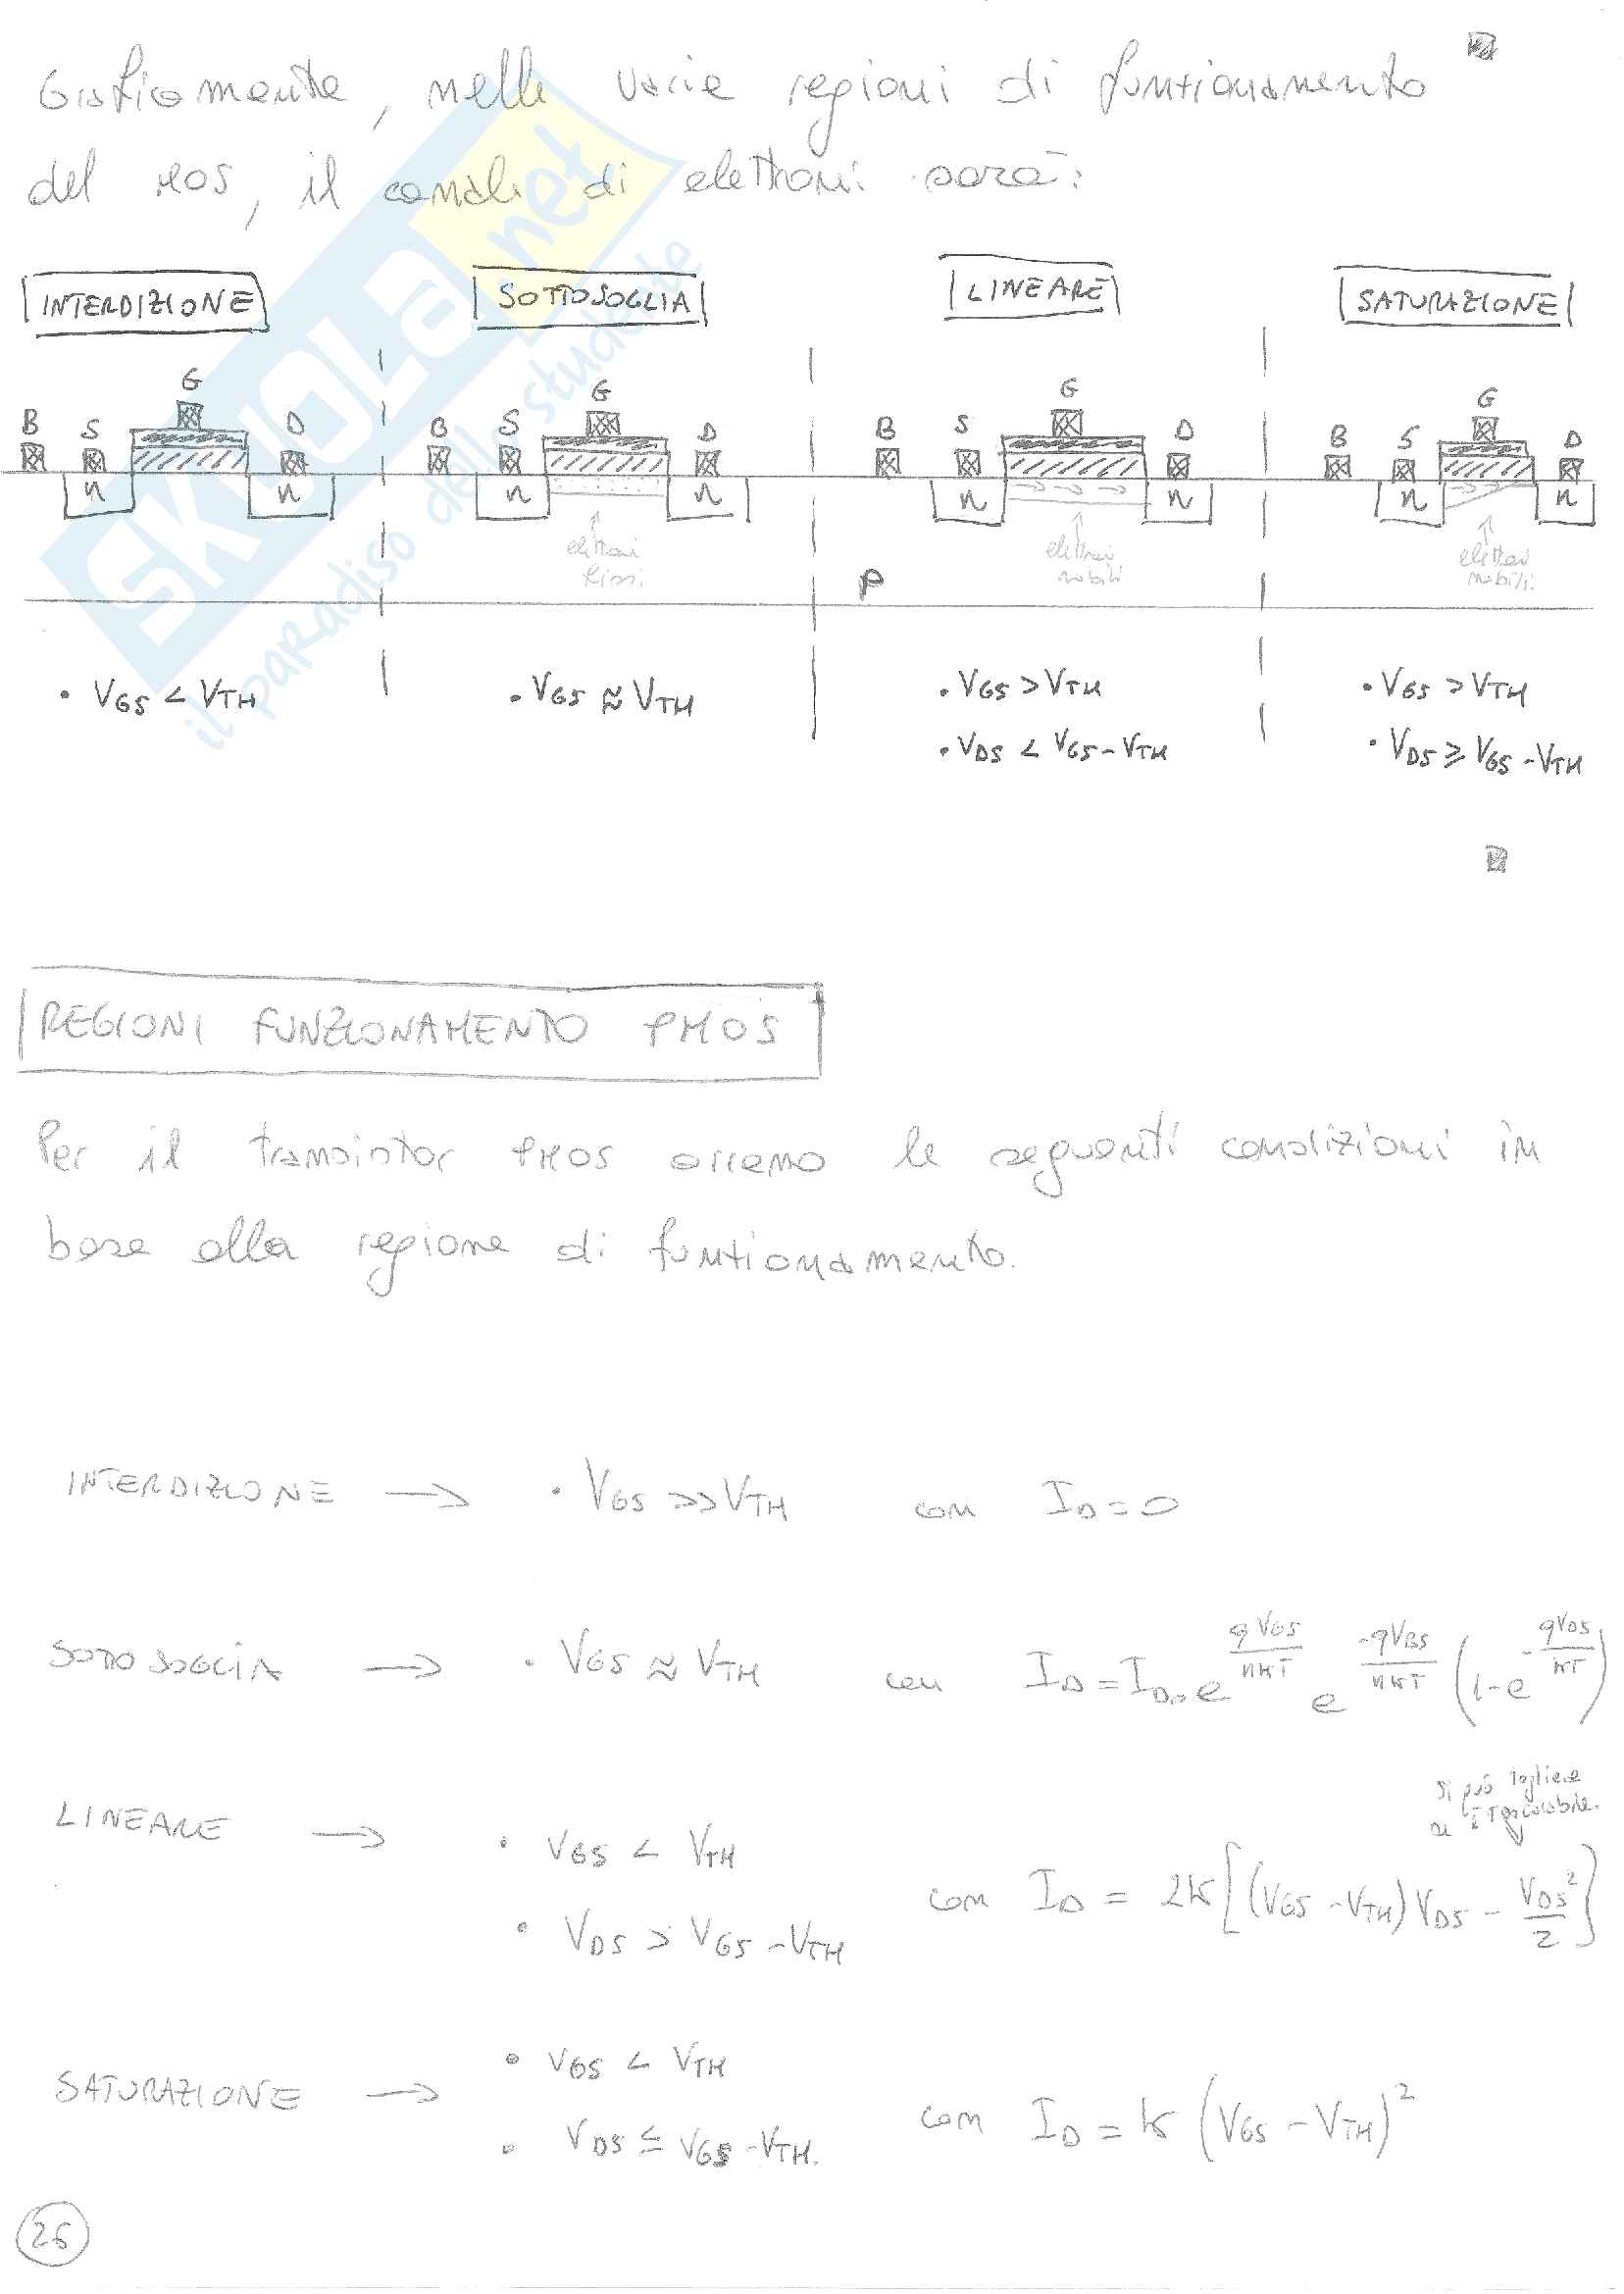 Graficamente, nelle varie regioni di funzionamento
del MOS, il canale di elettroni sarà:
SKUOLA.net
il paradiso dello studente
INTERDIZIONE
SOTTOSOGLIA
LINEARE
SATURAZIONE
B S G D
B S G D
B S G D
B S G D
n n
n n
n n
n n
elettroni
fissi
elettroni
mobili
elettroni
mobili
P
• VGS < VTH
• VGS ≈ VTH
• VGS > VTH
• VDS < VGS - VTH
• VGS > VTH
• VDS ≥ VGS - VTH
REGIONI FUNZIONAMENTO PMOS
Per il transistor PMOS avremo le seguenti condizioni in
base alla regione di funzionamento.
INTERDIZIONE → • VGS >> VTH con ID = 0
SOTTOSOGLIA → • VGS ≈ VTH con ID = ID0 e^(qVGS/nKT) e^(-qVBS/nKT) (1 - e^(-qVDS/KT))
si può togliere
se trascurabile.
LINEARE → • VGS < VTH
• VDS > VGS - VTH con ID = 2K[(VGS - VTH)VDS - VDS²/2]
SATURAZIONE → • VGS < VTH
• VDS ≤ VGS - VTH. con ID = K (VGS - VTH)²
26